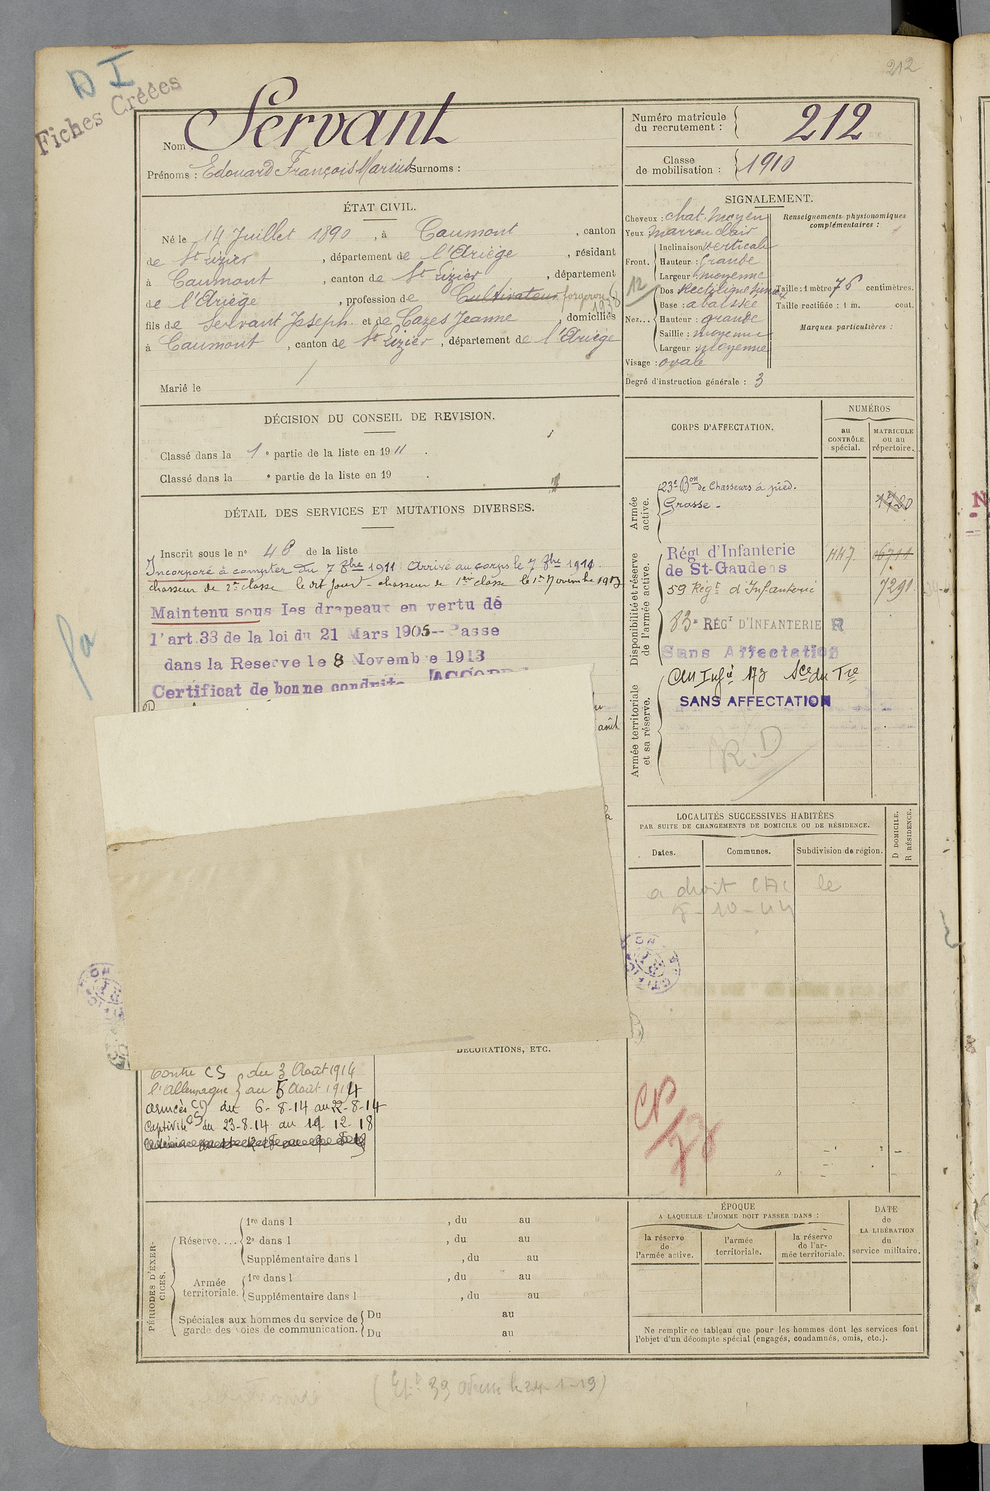 212
D I
Fiches Créées
Nom Servant
Prénoms : Edouard François Marius Surnoms :
Numéro matricule du recrutement : 212
Classe de mobilisation : 1910
ÉTAT CIVIL.
Né le 14 Juillet 1890, à Caumont, canton
de St Lizier, département de l'Ariège, résidant
à Caumont, canton de St Lizier, département
de l'Ariège, profession de Cultivateur forgeron
fils de Servant Joseph et de Cazes Jeanne, domiciliés
à Caumont, canton de St Lizier, département de l'Ariège
Marié le
SIGNALEMENT.
Cheveux : chat. moyen
Yeux : marron clair
Front. Inclinaison verticale
Hauteur : grande
Largeur : moyenne
Nez... Dos rectiligne
Base : abaissée
Hauteur : grande
Saillie : moyenne
Largeur : moyenne
Visage : ovale
Degré d'instruction générale : 3
12
Renseignements physionomiques complémentaires :
Taille : 1 mètre 76 centimètres.
Taille rectifiée : 1 m. cent.
Marques particulières :
DÉCISION DU CONSEIL DE REVISION.
Classé dans la 1e partie de la liste en 1911.
Classé dans la e partie de la liste en 19 .
DÉTAIL DES SERVICES ET MUTATIONS DIVERSES.
Inscrit sous le n° 48 de la liste
Incorporé à compter du 7 8bre 1911. Arrivé au corps le 7 8bre 1911
chasseur de 2me classe le dit jour - chasseur de 1ère classe le 1er Novembre 1913
Maintenu sous les drapeaux en vertu de
l'art.33 de la loi du 21 Mars 1905--Passe
dans la Reserve le 8 Novembre 1913
Certificat de bonne conduite ACCORDÉ
août
CORPS D'AFFECTATION.
NUMÉROS
au CONTRÔLE spécial.
MATRICULE ou au répertoire.
Armée active.
23e Bon de Chasseurs à pied.
Grasse -
1720
Disponibilité et réserve de l'armée active.
Régt d'Infanterie
de St-Gaudens
1147
6711
59 Régt d'Infanterie
7291
83e RÉGt D'INFANTERIE R
Sans Affectation
Armée territoriale et sa réserve.
SANS AFFECTATION
R.D
LOCALITÉS SUCCESSIVES HABITÉES
PAR SUITE DE CHANGEMENTS DE DOMICILE OU DE RÉSIDENCE.
Dates.
Communes.
Subdivision de région.
D DOMICILE.
R RÉSIDENCE.
a droit CAC le
8-10-44
DÉCORATIONS, ETC.
Contre CS du 3 Août 1914
l'Allemagne au 5 Août 1914
armées CD du 6-8-14 au 22-8-14
Captivité CS du 23-8-14 au 19 12-18
PÉRIODES D'EXERCICES.
Réserve.... 1re dans l , du au
2e dans l , du au
Supplémentaire dans l , du au
Armée territoriale. 1re dans l , du au
Supplémentaire dans l , du au
Spéciales aux hommes du service de garde des voies de communication. Du au
Du au
ÉPOQUE
A LAQUELLE L'HOMME DOIT PASSER DANS :
la réserve de l'armée active.
l'armée territoriale.
la réserve de l'armée territoriale.
DATE de LA LIBÉRATION du service militaire.
Ne remplir ce tableau que pour les hommes dont les services font
l'objet d'un décompte spécial (engagés, condamnés, omis, etc.).